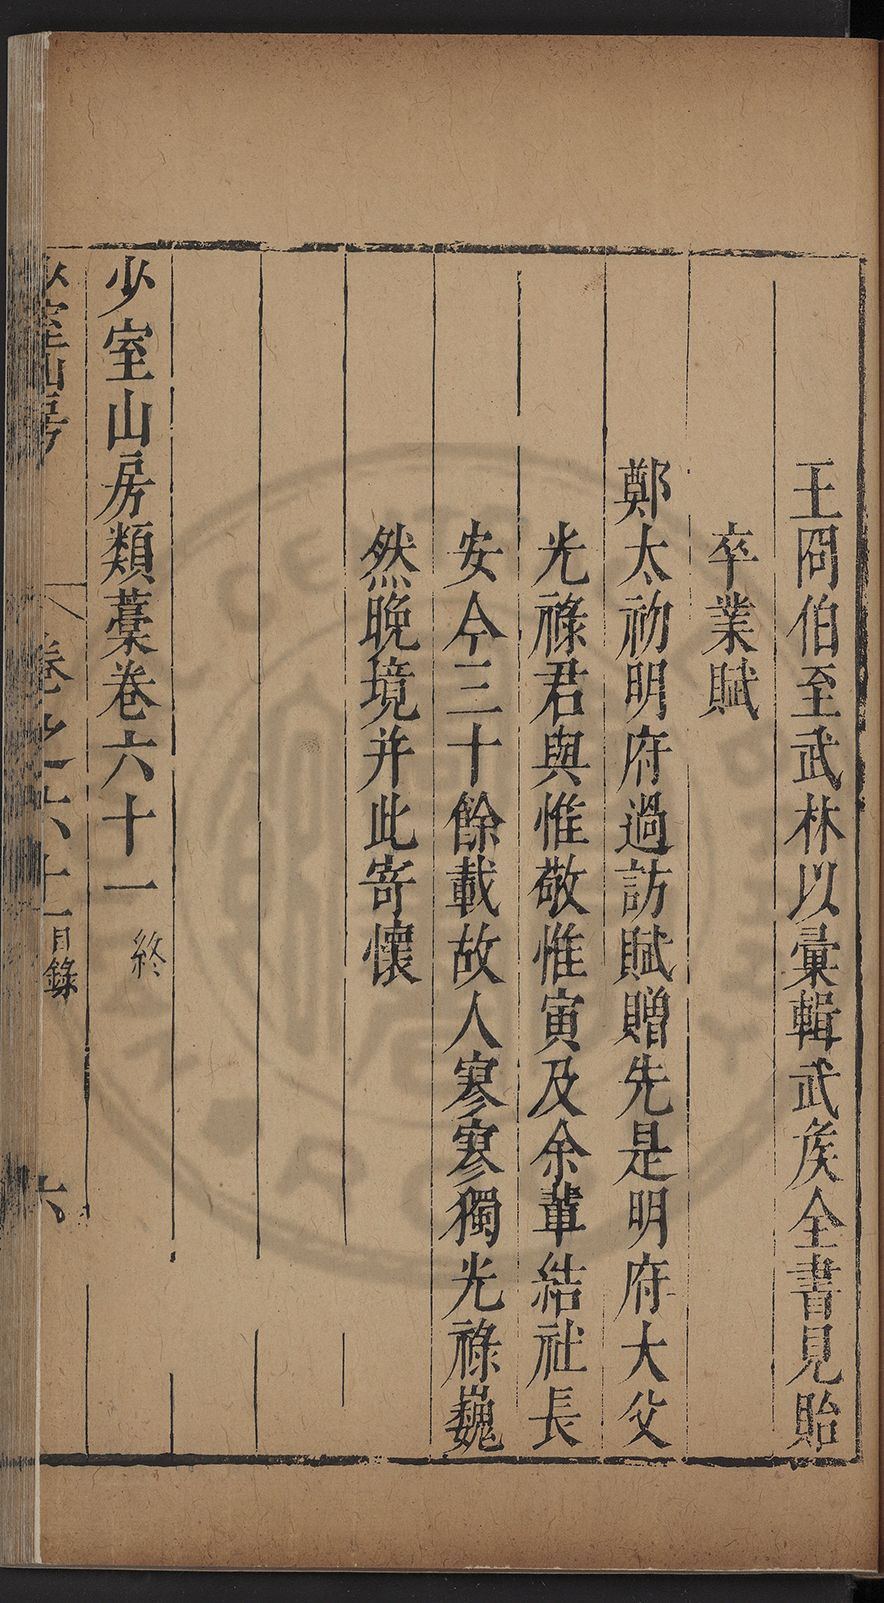 王冏伯至武林以彙輯武矦全書見貽
卒業賦
鄭太初明府過訪賦贈先是明府大父
光祿君與惟敬惟寅及余輩結社長
安今三十餘載故人寥寥獨光祿巍
然晚境并此寄懷
少室山房類藁卷六十一 終
少室山房 卷之六十一目錄 六